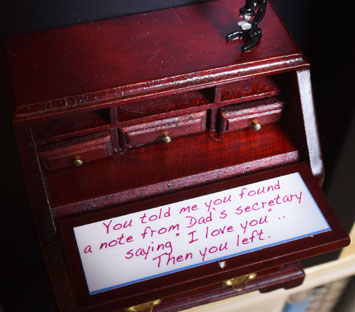 You told me you found
a note from Dad's secretary
saying "I love you"..
Then you left.